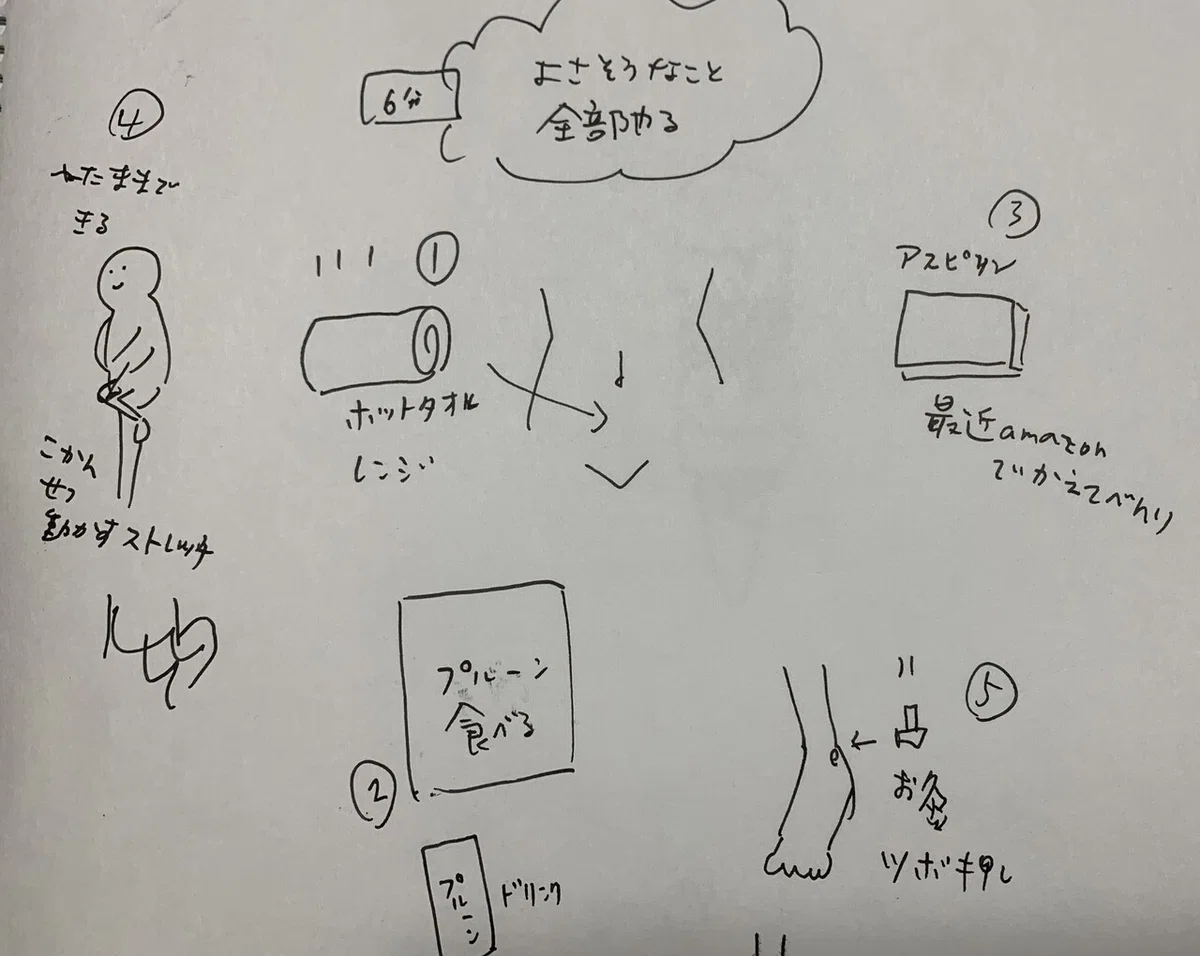 6分
よさそうなこと
全部やる
④
ねたままで
きる
こかん
せつ
動かすストレッチ
①
ホットタオル
レンジ
③
アスピリン
最近amazon
でかえてべんり
②
プルーン
食べる
プルーン
ドリンク
⑤
お灸
ツボ押し